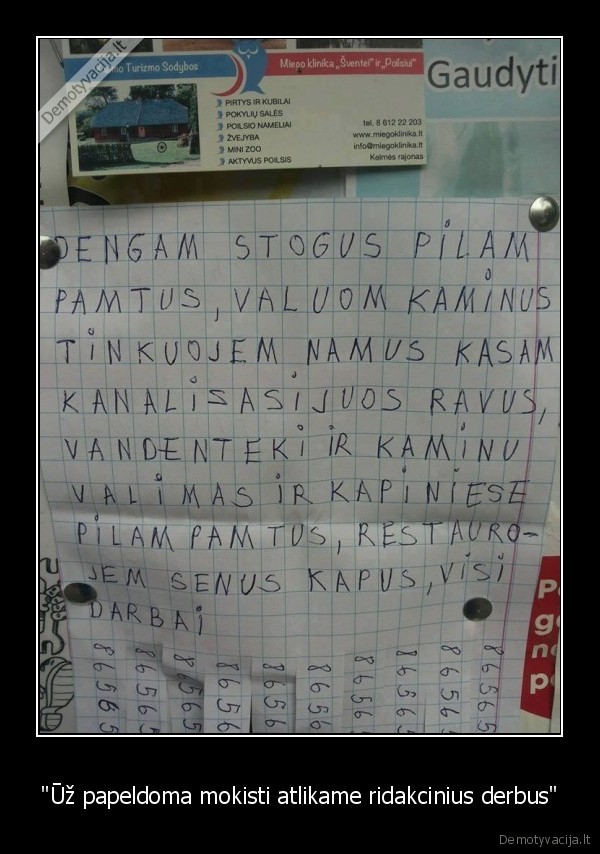 Demotyvacija.lt
mo Turizmo Sodybos
Miego klinika „Šventei" ir „Poilsiui"
PIRTYS IR KUBILAI
POKYLIŲ SALĖS
POILSIO NAMELIAI
ŽVEJYBA
MINI ZOO
AKTYVUS POILSIS
tel. 8 612 22 203
www.miegoklinika.lt
info@miegoklinika.lt
Kelmės rajonas
Gaudyti
DENGAM STOGUS PiLAM
PAMTUS, VALUOM KAMiNUS
TiNKUOJEM NAMUS KASAM
KANALiSASiJUOS RAVUS,
VANDENTEKi iR KAMiNU
VALiMAS iR KAPiNiESE
PiLAM PAMTUS, RESTAURO-
JEM SENUS KAPUS, ViSi
DARBAi
86565
86565
86565
8656
8656
8656
8656
86565
86565
86565
"Ūž papeldoma mokisti atlikame ridakcinius derbus"
Demotyvacija.lt